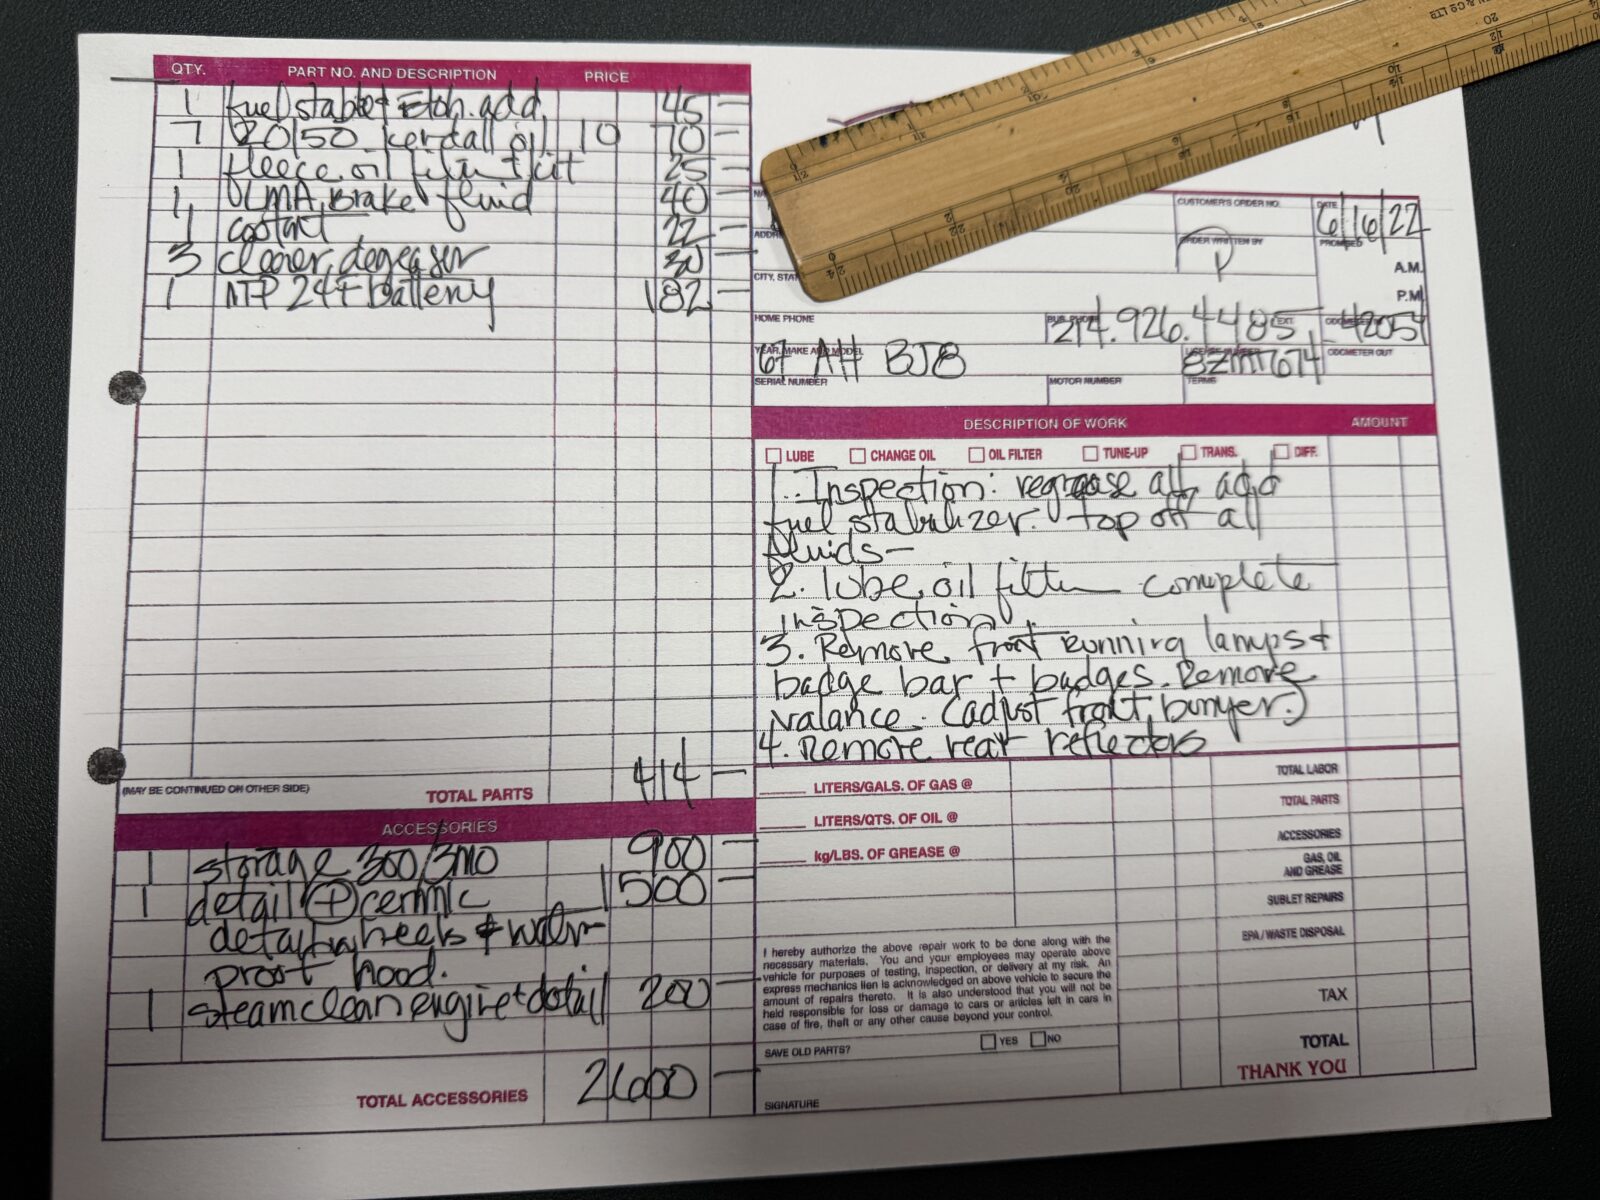 QTY. PART NO. AND DESCRIPTION PRICE
1 fuel stabl + Eth. add. 45 —
7 20/50 kendall oil 10 70 —
1 fleece oil filter kit 25 —
1 LMA Brake fluid 40 —
1 coolant 22 —
3 cleaner, degeaser 30 —
1 MTP 24+ Battery 182 —
414 —
(MAY BE CONTINUED ON OTHER SIDE) TOTAL PARTS
ACCESSORIES
1 storage 300/3mo 900 —
1 detail + cermic 1500 —
detail wheels + water
proof hood.
1 steam clean engine + detail 200 —
TOTAL ACCESSORIES 2600 —
CUSTOMER'S ORDER NO. DATE 6/16/22
ADDR
ORDER WRITTEN BY P PROMISED
A.M.
CITY, STA
P.M.
HOME PHONE BUS. PHONE 214.926.4485 EXT. 42054
YEAR, MAKE AND MODEL 67 AH BJ8 8ZM7674 ODOMETER OUT
SERIAL NUMBER MOTOR NUMBER TERMS
DESCRIPTION OF WORK AMOUNT
LUBE CHANGE OIL OIL FILTER TUNE-UP TRANS. DIFF.
1. Inspection: regrease all, add
fuel stabilizer. top off all
fluids —
2. lube, oil filter complete
inspection
3. Remove front running lamps +
badge bar + badges. Remove
valance. (adjust front bumper.)
4. Remove rear reflectors
LITERS/GALS. OF GAS @ TOTAL LABOR
LITERS/QTS. OF OIL @ TOTAL PARTS
kg/LBS. OF GREASE @ ACCESSORIES
GAS, OIL
AND GREASE
SUBLET REPAIRS
EPA / WASTE DISPOSAL
I hereby authorize the above repair work to be done along with the
necessary materials. You and your employees may operate above
vehicle for purposes of testing, inspection, or delivery at my risk. An
express mechanics lien is acknowledged on above vehicle to secure the
amount of repairs thereto. It is also understood that you will not be
held responsible for loss or damage to cars or articles left in cars in
case of fire, theft or any other cause beyond your control.
TAX
SAVE OLD PARTS? YES NO
TOTAL
THANK YOU
SIGNATURE